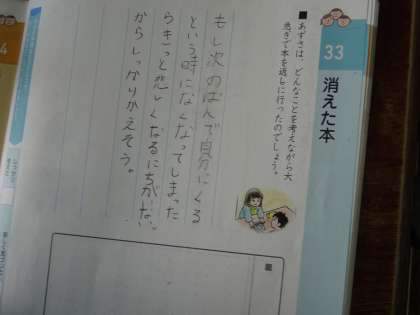 33
消えた本
■あずさは、どんなことを考えながら大
急ぎで本を返しに行ったのでしょう。
もし次のばんで自分にくる
という時になくなってしまった
らきっと悲しくなるにちがいな
からしっかりかえそう。